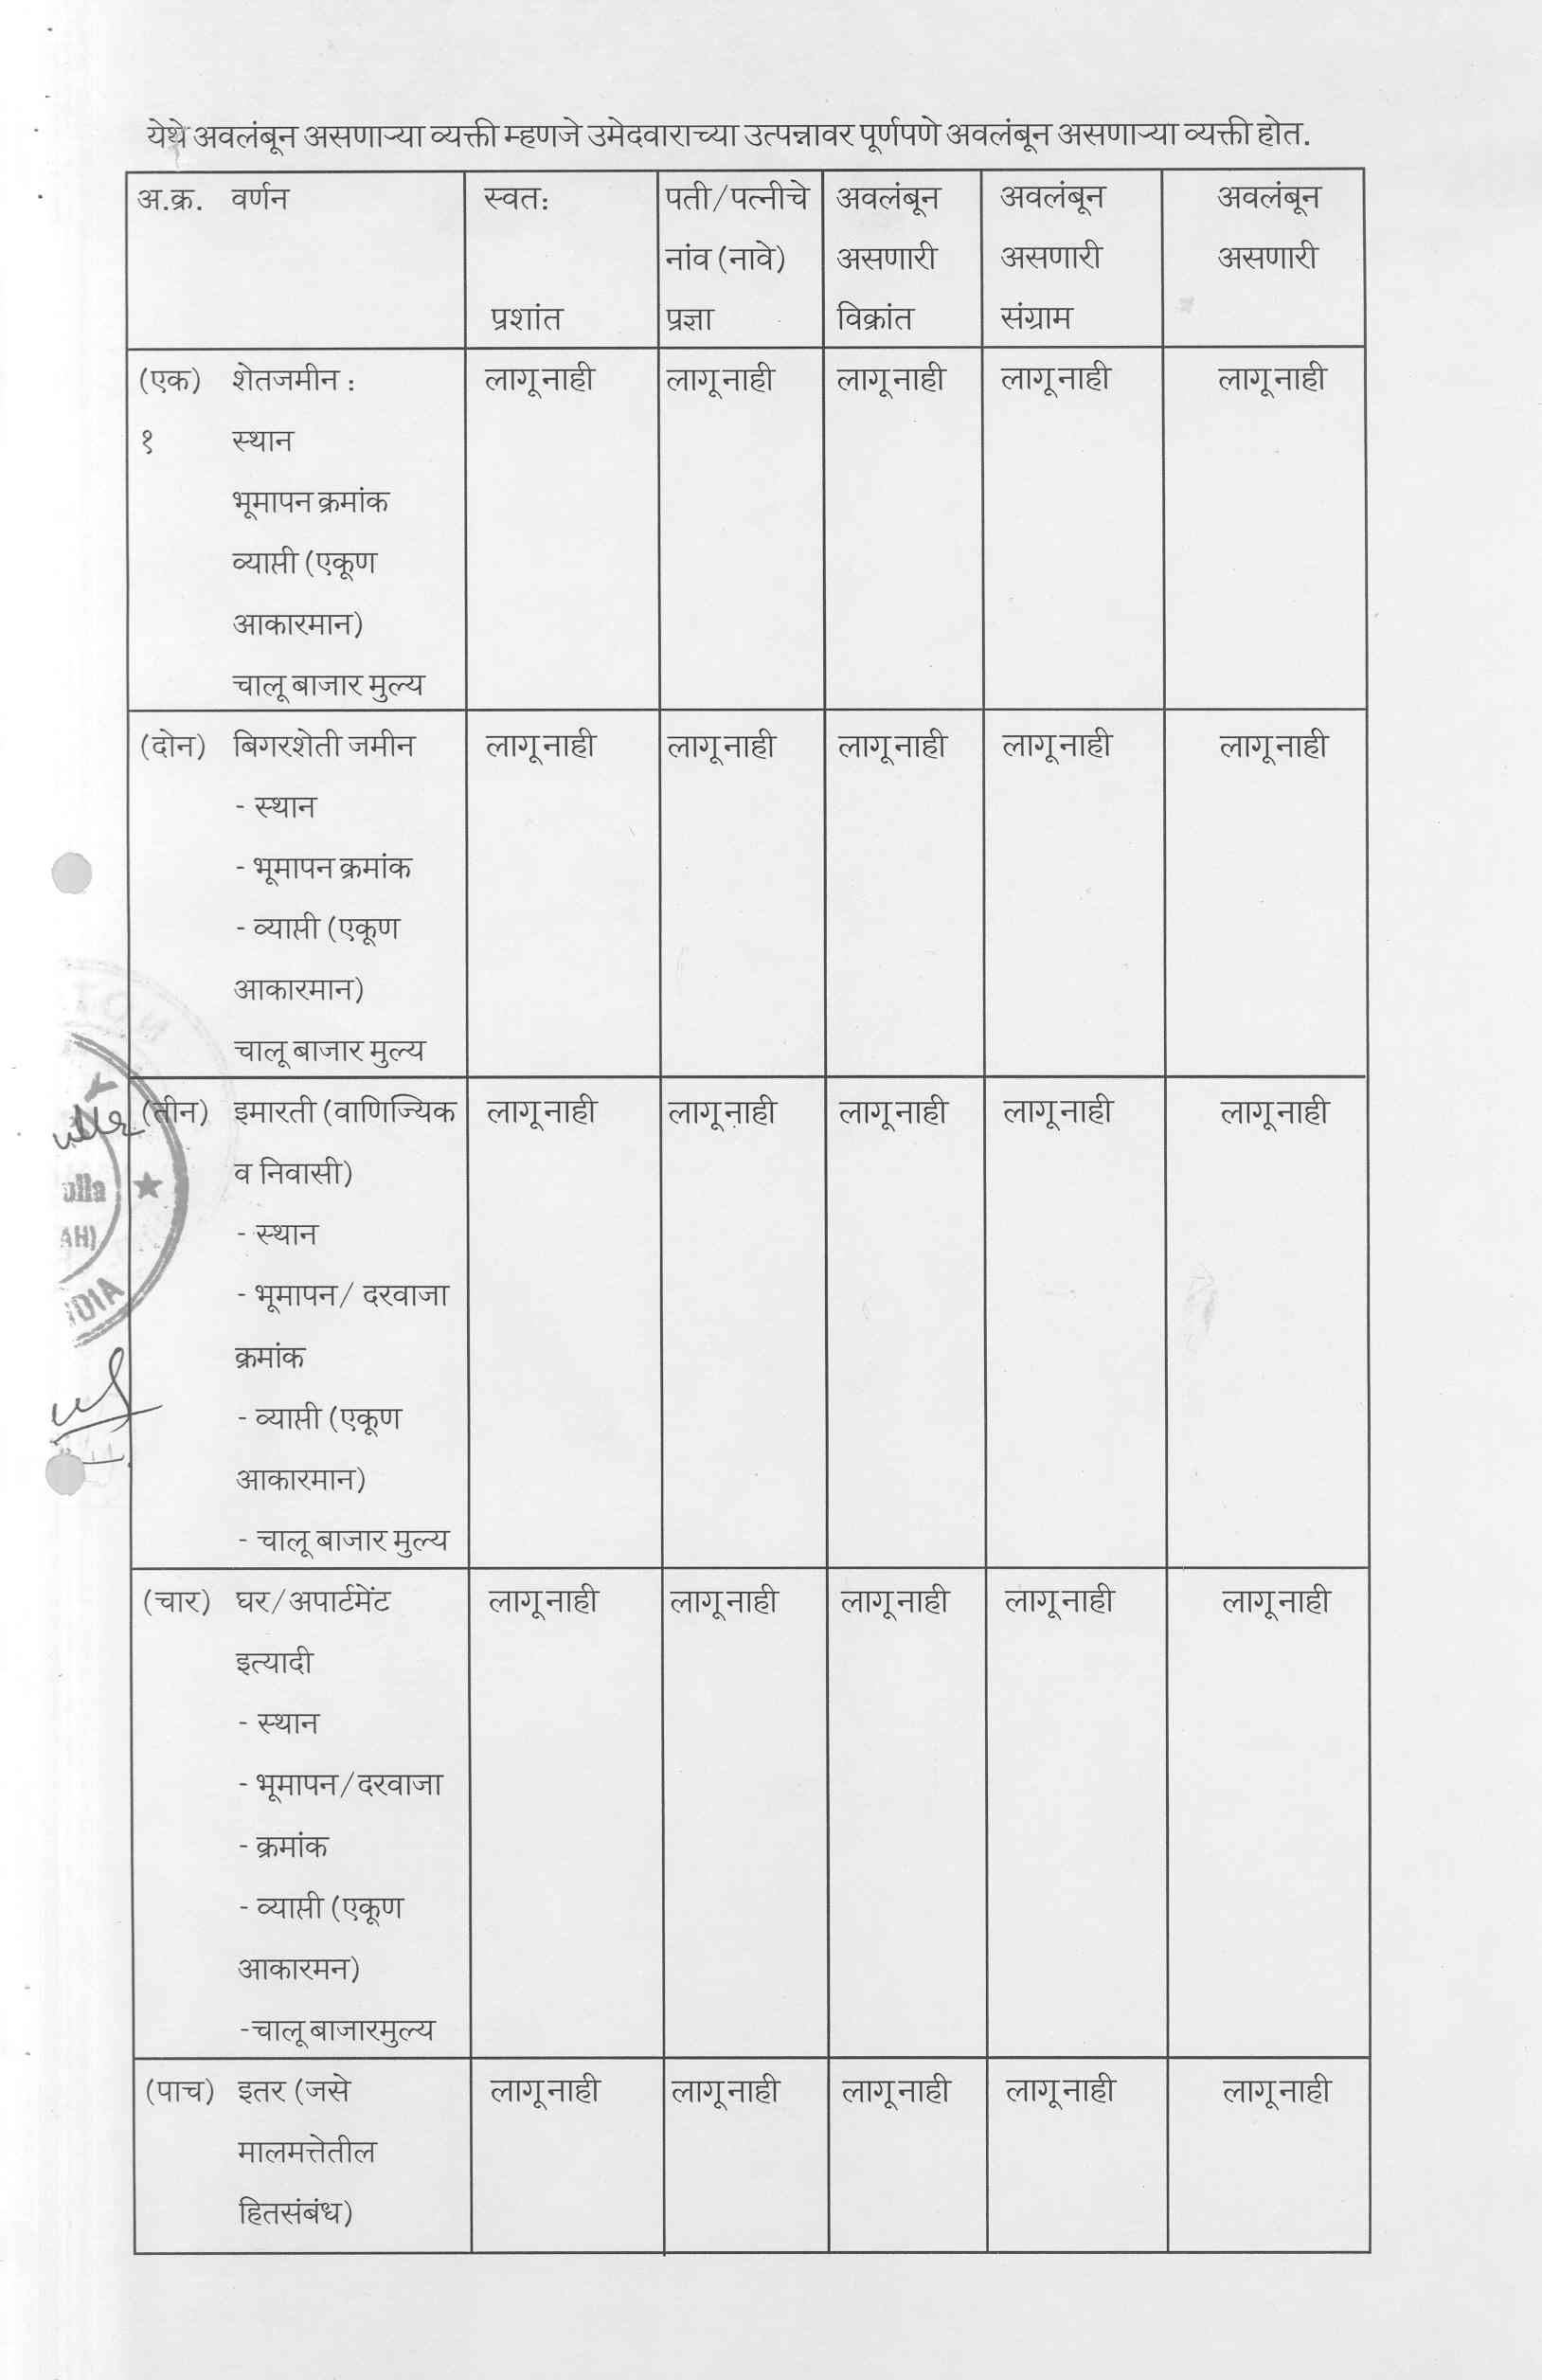 येथे अवलंबून असणाऱ्या व्यक्ती म्हणजे उमेदवाराच्या उत्पन्नावर पूर्णपणे अवलंबून असणाऱ्या व्यक्ती होत.
अ.क्र. वर्णन स्वत: पती/पत्नीचे अवलंबून अवलंबून अवलंबून
नांव (नावे) असणारी असणारी असणारी
प्रशांत प्रज्ञा विक्रांत संग्राम
(एक) शेतजमीन : लागू नाही लागू नाही लागू नाही लागू नाही लागू नाही
१ स्थान
भूमापन क्रमांक
व्याप्ती (एकूण
आकारमान)
चालू बाजार मुल्य
(दोन) बिगरशेती जमीन लागू नाही लागू नाही लागू नाही लागू नाही लागू नाही
- स्थान
- भूमापन क्रमांक
- व्याप्ती (एकूण
आकारमान)
चालू बाजार मुल्य
(तीन) इमारती (वाणिज्यिक लागू नाही लागू नाही लागू नाही लागू नाही लागू नाही
व निवासी)
- स्थान
- भूमापन/ दरवाजा
क्रमांक
- व्याप्ती (एकूण
आकारमान)
- चालू बाजार मुल्य
(चार) घर/अपार्टमेंट लागू नाही लागू नाही लागू नाही लागू नाही लागू नाही
इत्यादी
- स्थान
- भूमापन/दरवाजा
- क्रमांक
- व्याप्ती (एकूण
आकारमन)
-चालू बाजारमुल्य
(पाच) इतर (जसे लागू नाही लागू नाही लागू नाही लागू नाही लागू नाही
मालमत्तेतील
हितसंबंध)